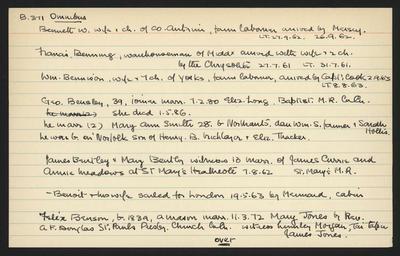 B.371 Omnibus
Bennett W. wife & ch. of Co. Antrim, farm labourer arrived by Mersey.
LT. 27.9.62. 26.9.62.
Francis Benning, warehouseman of Middx arrived with wife & 2 ch.
by the Chrysolite 27.7.61 LT. 31.7.61.
Wm. Bennison, wife & 7 ch. of Yorks, farm labourer, arrived by Capt. Cook 2.9.63
LT. 8.8.63.
Geo. Bensley, 39, joiner marr. 7.2.80 Eliz. Long. Baptist. M.R.
she died 1.5.86.
he marr (2) Mary Ann Smith 28. b Northants. dau Wm. S. farmer & Sarah
Hollis.
he was b. in Norfolk son of Henry. B. & Eliz. Thacker.
James Bentley & Mary Bentley witnesses to marr. of James Currie and
Annie Meadows at St Mary's Heathcote 7.8.62 St. Mary's M.R.
- Benoit & his wife sailed for London 19.5.63 by Mermaid, cabin
Felix Benson, b 1839, a mason marr. 11.3.72 Mary Jones by Rev.
A.F. Douglas St. Pauls Presby. Church witness Morgan,
James Jones.
over